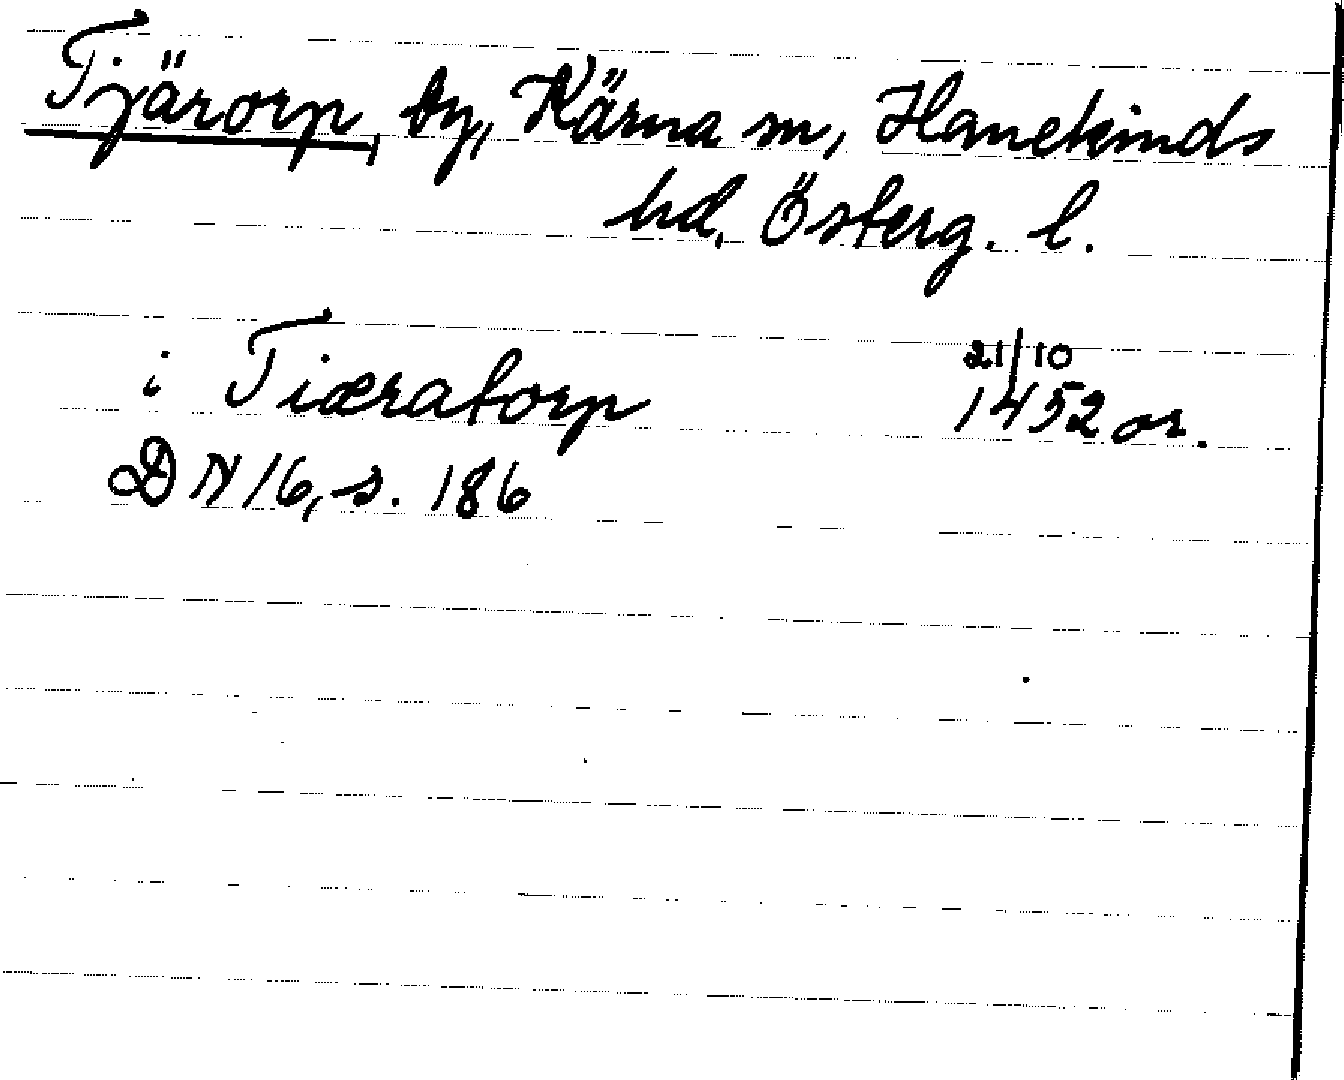 Tjärorp, by, Kärna sn, Hanekinds
hd. Österg. l.
i Tiæratorp 21/10 1452 or.
DN 16, s. 186